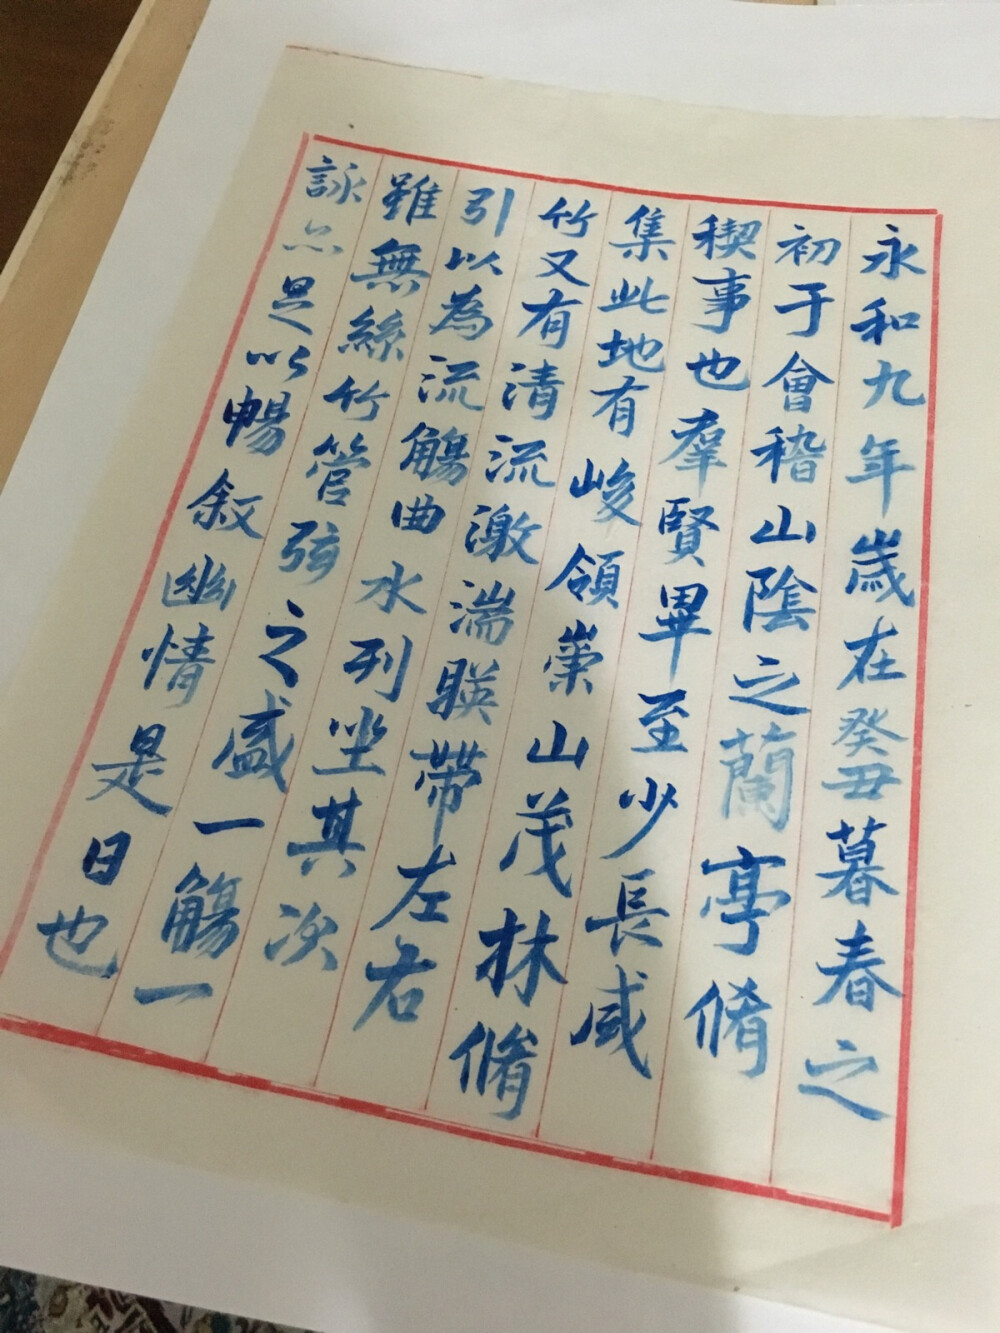 永和九年歲在癸丑暮春之
初于會稽山陰之蘭亭脩
稧事也羣賢畢至少長咸
集此地有峻領崇山茂林脩
竹又有清流激湍暎帶左右
引以為流觴曲水列坐其次
雖無絲竹管弦之盛一觴一
詠亦足以暢敘幽情是日也